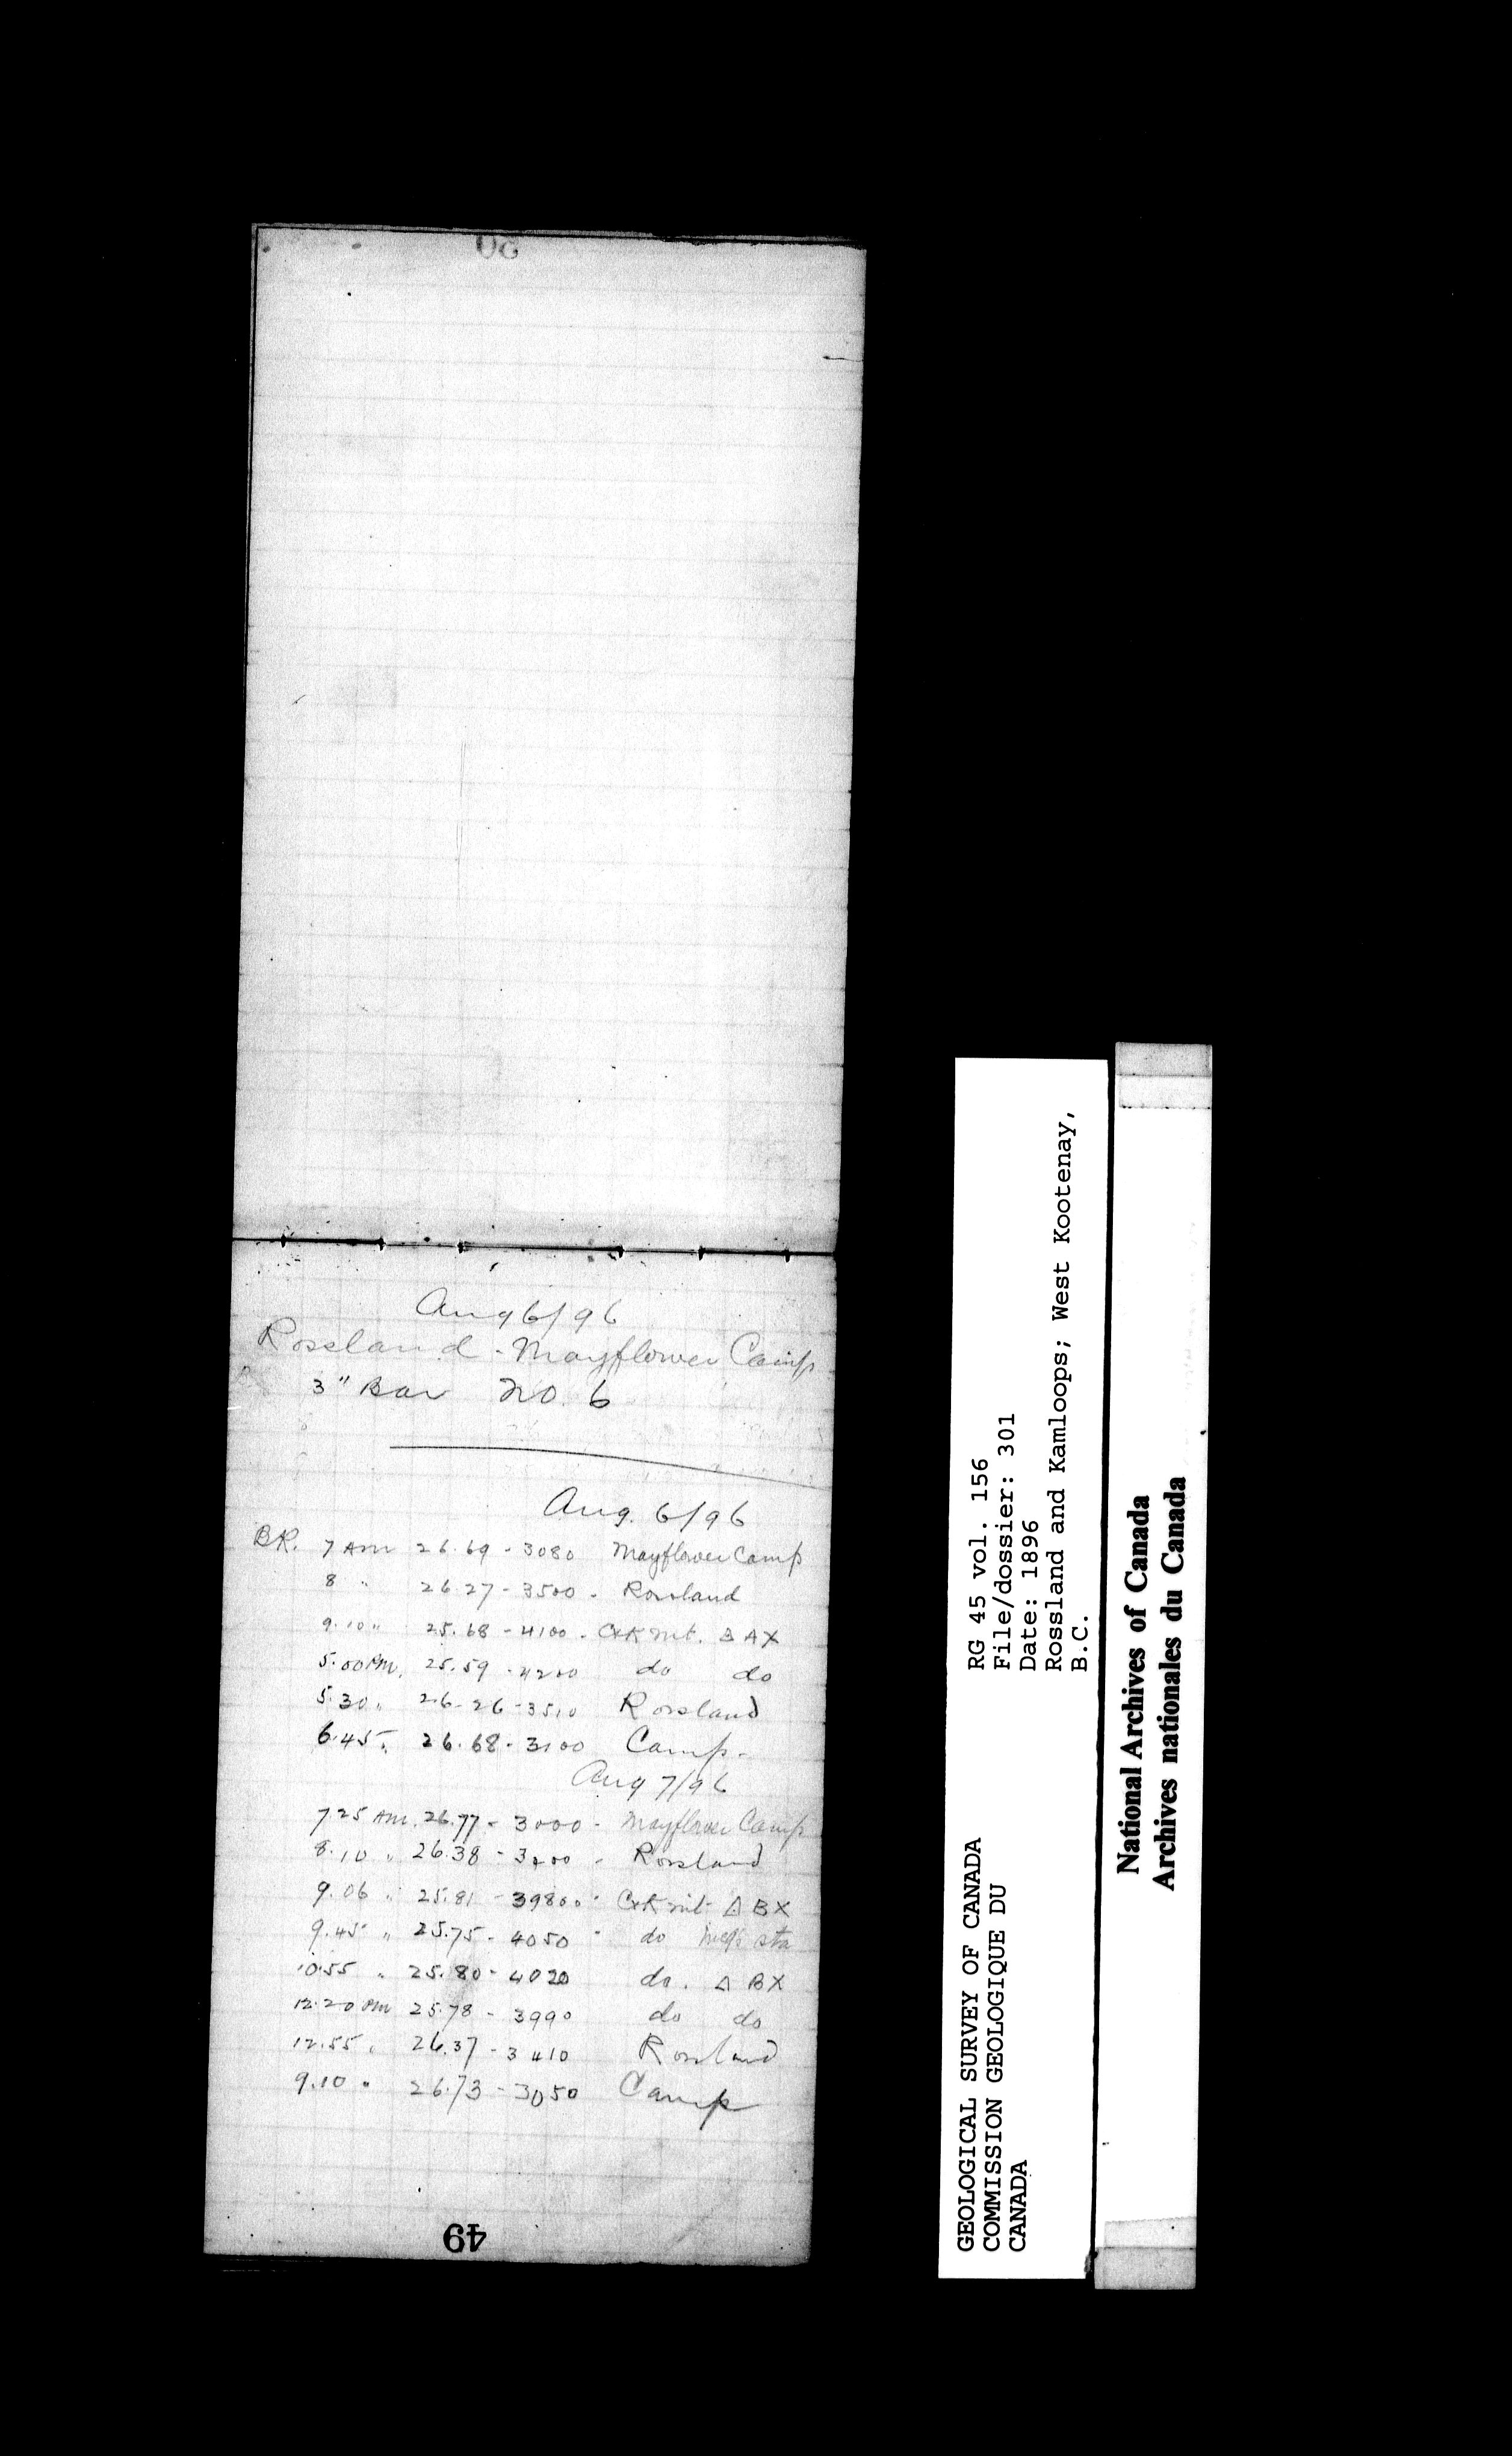 50
Aug 6/96
Rossland - Mayflower Camp
3" Bar no. 6
Aug. 6/96
BR. 7 Am 26.69 - 3080 Mayflower Camp
8 " 26.27 - 3500 - Rossland
9.10 " 25.68 - 4100 - C&K mt. Δ AX
5.00 PM. 25.59 - 4200 do do
5.30 " 26.26 - 3510 Rossland
6.45 " 26.68 - 3100 Camp -
Aug 7/96
7.25 Am. 26.77 - 3000 - Mayflower Camp
8.10 " 26.38 - 3400 - Rossland
9.06 " 25.81 - 39800 - C&K mt Δ BX
9.45 " 25.75 - 4050 - do sta
10.55 " 25.80 - 4020 do. Δ BX
12.20 PM 25.78 - 3990 do do
12.55 " 26.37 - 3410 Rossland
9.10 " 26.73 - 3050 Camp
49
GEOLOGICAL SURVEY OF CANADA
COMMISSION GEOLOGIQUE DU
CANADA
RG 45 vol. 156
File/dossier: 301
Date: 1896
Rossland and Kamloops; West Kootenay,
B.C.
National Archives of Canada
Archives nationales du Canada